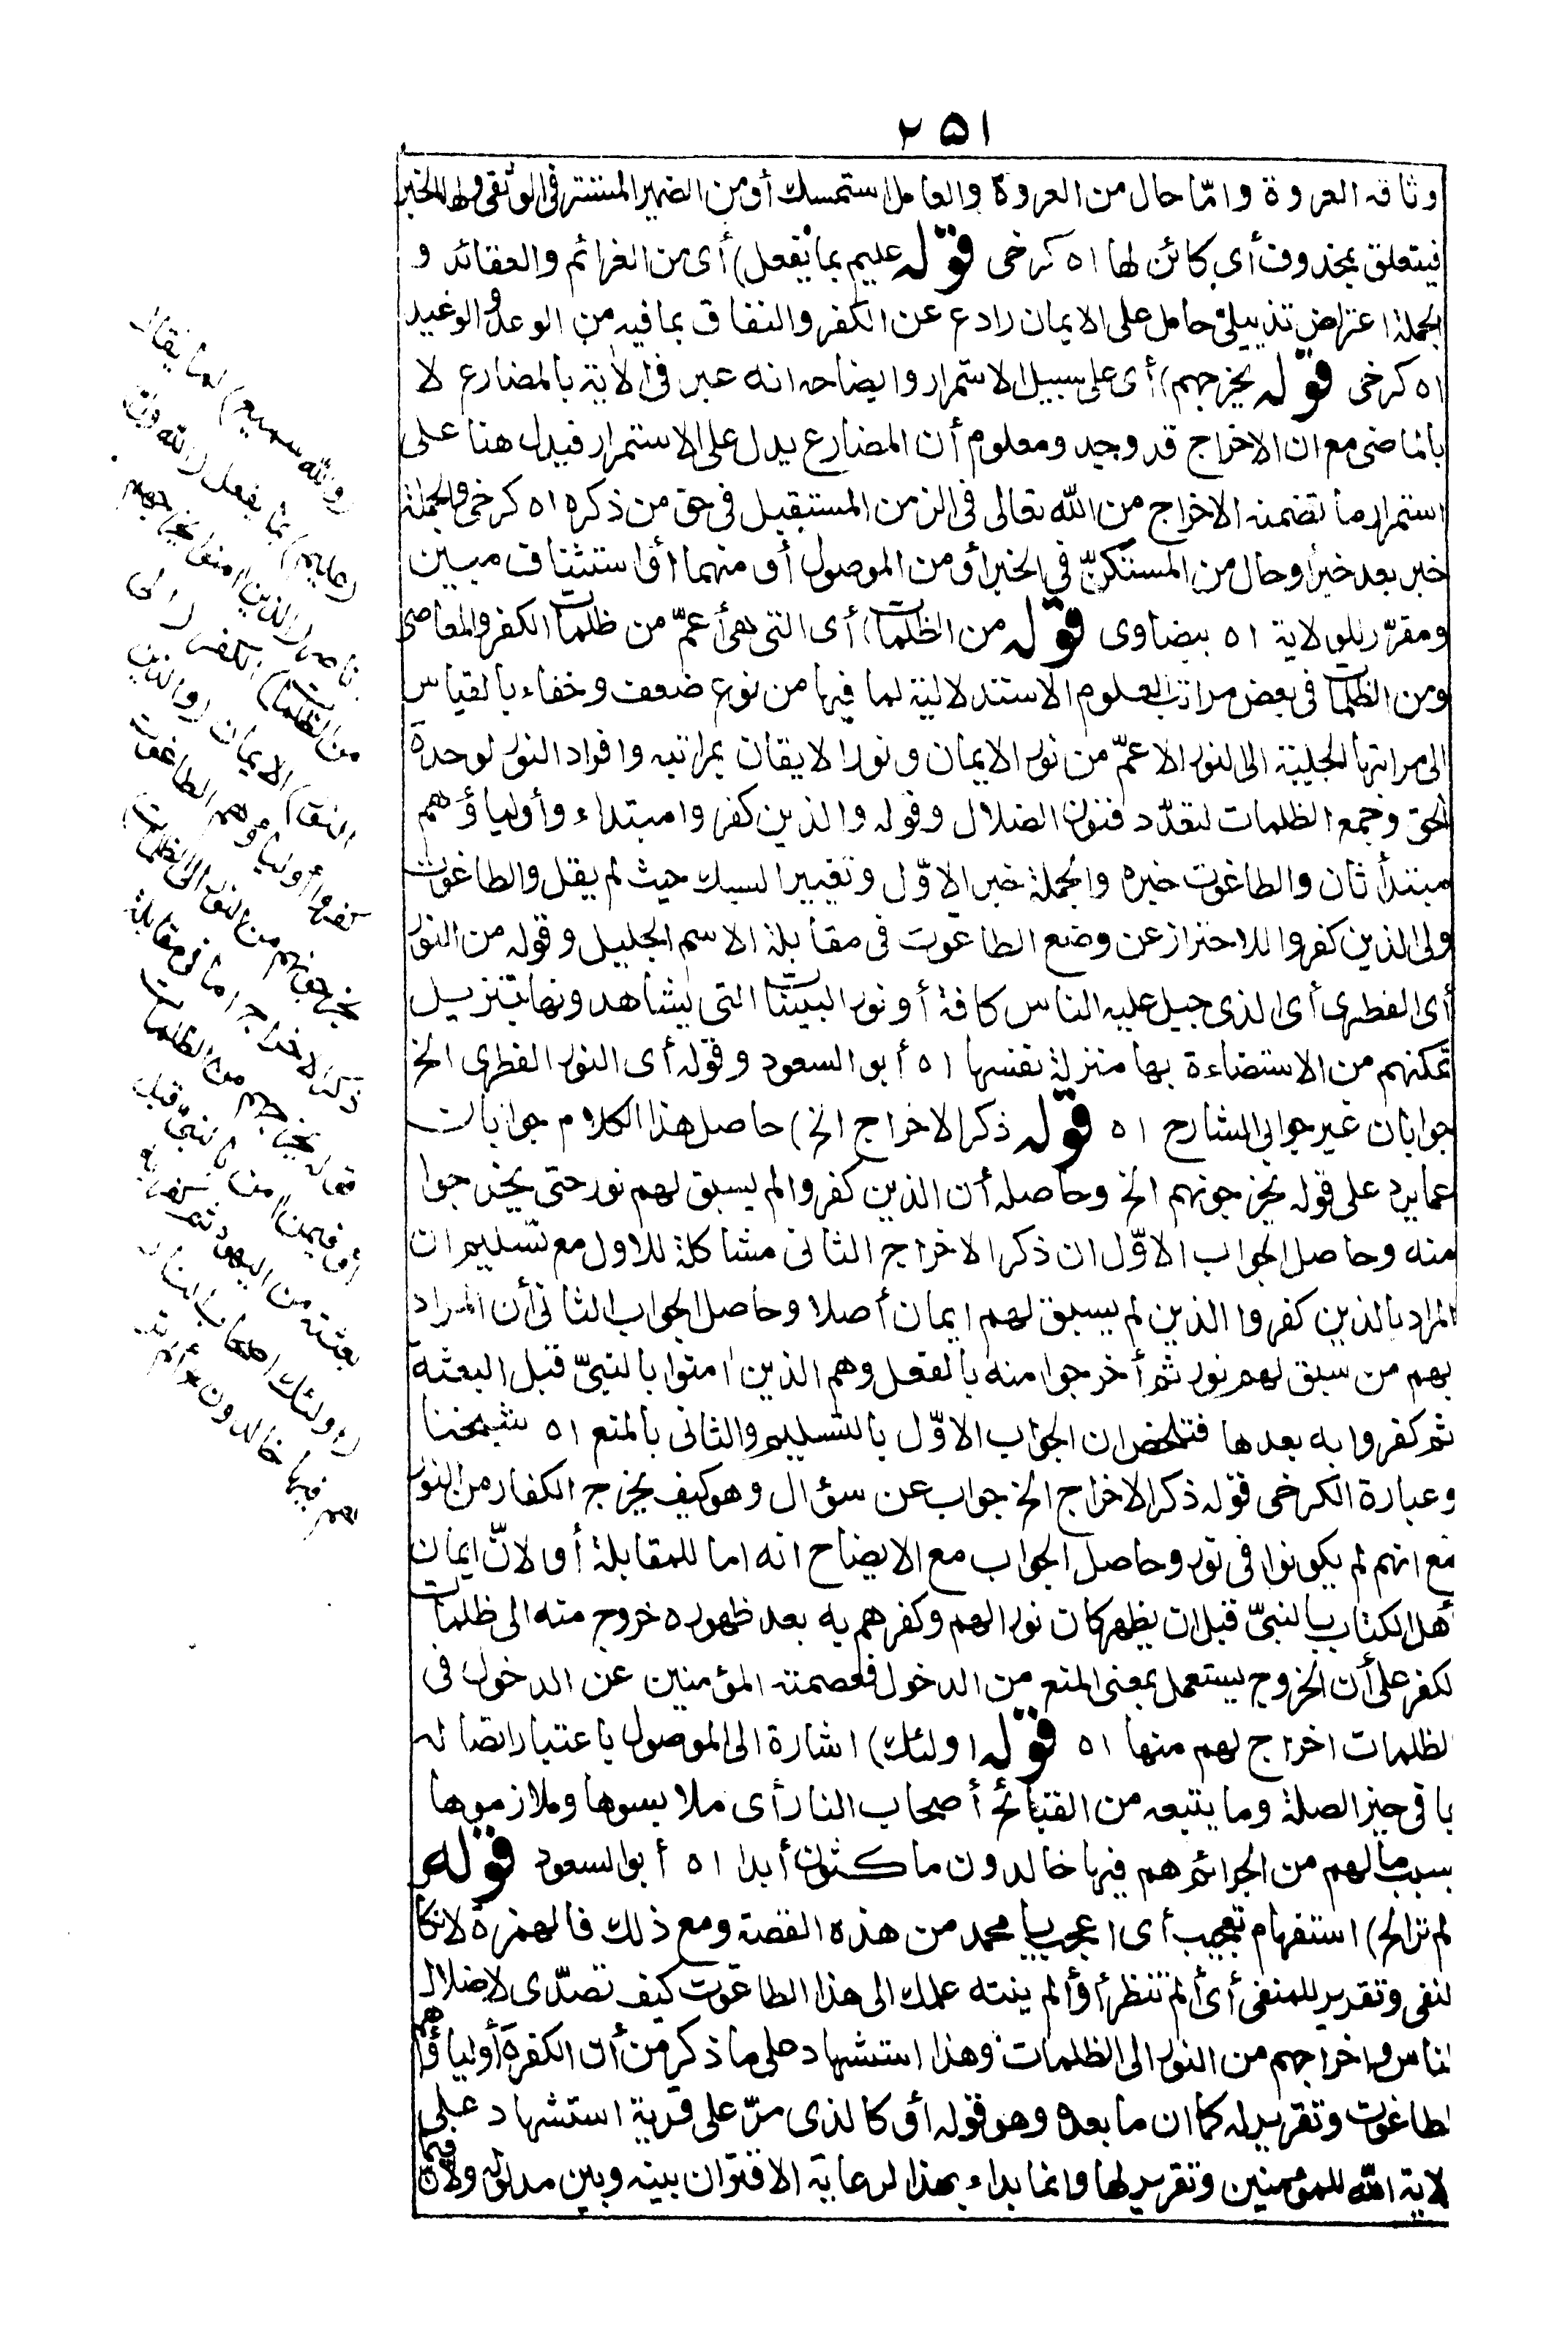 ٢٥١
وثاقه العروة وامّا حال من العروة والعامل استمسك أو من الضمير المستتر فى الوثقى ولها الخبر
فيتعلق بمحذوف أى كائن لها اه كرخى قوله عليم بما يفعل) أى من العزائم والعقائد و
الجملة اعتراض تذييلىّ حامل على الايمان رادع عن الكفر والنفاق بما فيه من الوعد والوعيد
اه كرخى قوله يخرجهم) أى على سبيل الاستمرار وايضاحه انه عبر فى الاية بالمضارع لا
بالماضى مع ان الاخراج قد وجد ومعلوم أن المضارع يدل على الاستمرار فيدل هنا على
استمرار ما تضمنه الاخراج من الله تعالى فى الزمن المستقبل فى حق من ذكره اه كرخى والجملة
خبر بعد خبر أو حال من المستكنّ فى الخبر أو من الموصول أو منهما أو استئناف مبين
ومقرّر للولاية اه بيضاوى قوله من الظلمات) أى التى هى أعمّ من ظلمات الكفر والمعاصى
ومن الظلمات فى بعض مراتب العلوم الاستدلالية لما فيها من نوع ضعف وخفاء بالقياس
الى مراتبها الجلية الى النور الاعمّ من نور الايمان ونور الايقان بمراتبه وافراد النور لوحدة
الحق وجمع الظلمات لتعدّد فنون الضلال وقوله والذين كفروا مبتداء وأولياؤهم
مبتدأ ثان والطاغوت خبره والجملة خبر الاوّل وتغيير السبك حيث لم يقل والطاغوت
ولى الذين كفروا للاحتراز عن وضع الطاغوت فى مقابلة الاسم الجليل وقوله من النور
أى الفطرى أى الذى جبل عليه الناس كافة أو نور البينات التى يشاهدونها بتنزيل
تمكنهم من الاستضاءة بها منزلة نفسها اه أبو السعود وقوله أى النور الفطرى الخ
جوابان غير جوابى الشارح اه قوله ذكر الاخراج الخ) حاصل هذا الكلام جوابان
عما يرد على قوله يخرجونهم الخ وحاصله أن الذين كفروا لم يسبق لهم نور حتى يخرجوا
منه وحاصل الجواب الاوّل ان ذكر الاخراج الثانى مشاكلة للاول مع تسليم ان
المراد بالذين كفروا الذين لم يسبق لهم ايمان أصلا وحاصل الجواب الثانى أن المراد
بهم من سبق لهم نور ثم أخرجوا منه بالفعل وهم الذين امنوا بالنبىّ قبل البعثة
ثم كفروا به بعدها فتلخص ان الجواب الاوّل بالتسليم والثانى بالمنع اه شيخنا
وعبارة الكرخى قوله ذكر الاخراج الخ جواب عن سؤال وهو كيف يخرج الكفار من النور
مع انهم لم يكونوا فى نور وحاصل الجواب مع الايضاح انه اما للمقابلة أو لانّ ايمان
أهل الكتاب بالنبىّ قبل ان يظهر كان نورا لهم وكفرهم به بعد ظهوره خروج منه الى ظلمات
لكفر على أن الخروج يستعمل بمعنى المنع من الدخول فعصمته المؤمنين عن الدخول فى
لظلمات اخراج لهم منها اه قوله اولئك) اشارة الى الموصول باعتبار اتصاله
بما فى حيز الصلة وما يتبعه من القبائح أصحاب النار أى ملابسوها وملازموها
بسبب ما لهم من الجرائم هم فيها خالدون ماكثون أبدا اه أبو السعود قوله
لم تر الخ) استفهام تعجيب أى اعجب يا محمد من هذه القصة ومع ذلك فالهمزة لانكا
لنفى وتقرير للمنفى أى ألم تنظر أو ألم ينته علمك الى هذا الطاغوت كيف تصدّى لاضلال
لناس واخراجهم من النور الى الظلمات وهذا استشهاد على ما ذكر من أن الكفرة أولياؤهم
لطاغوت وتقرير له كما ان ما بعده وهو قوله أو كالذى مرّ على قرية استشهاد على
لاية الله للمؤمنين وتقرير لها وانما بداء بهذا لرعاية الاقتران بينه وبين مدلوله ولانّ فيما
(والله سميع) لما يقال
(عليم) بما يفعل (الله ولى)
ناصر (الذين امنوا يخرجهم
من الظلمات) الكفر (الى
النور) الايمان (والذين
كفروا أولياؤهم الطاغوت
يخرجونهم من النور الى الظلمات)
ذكر الاخراج اما فى مقابلة
قوله يخرجهم من الظلمات
أو فيمن امن بالنبىّ قبل
بعثته من اليهود ثم كفر به
(اولئك اصحاب النار
هم فيها خالدون ألم تر